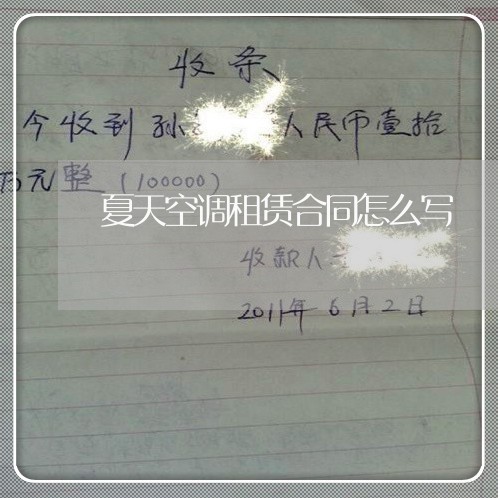 收条
今收到孙 人民币壹拾
万元整(100000)
夏天空调租赁合同怎么写
收款人
2011年6月2日